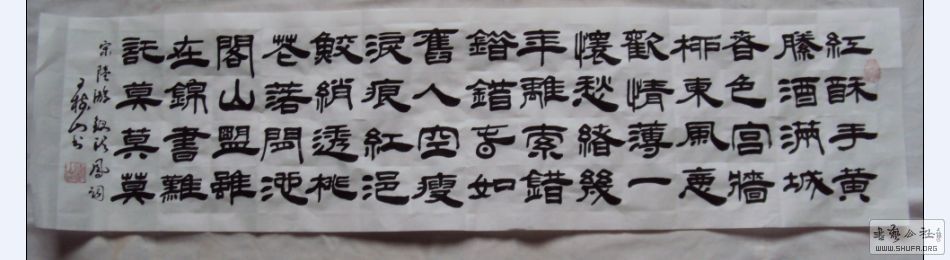 紅酥手黃
縢酒滿城
春色宮牆
柳東風惡
歡情薄一
懷愁緒幾
年離索錯
錯錯春如
舊人空瘦
淚痕紅浥
鮫綃透桃
花落閑池
閣山盟雖
在錦書難
託莫莫莫
宋陸游釵頭鳳詞
WWW.SHUFA.ORG